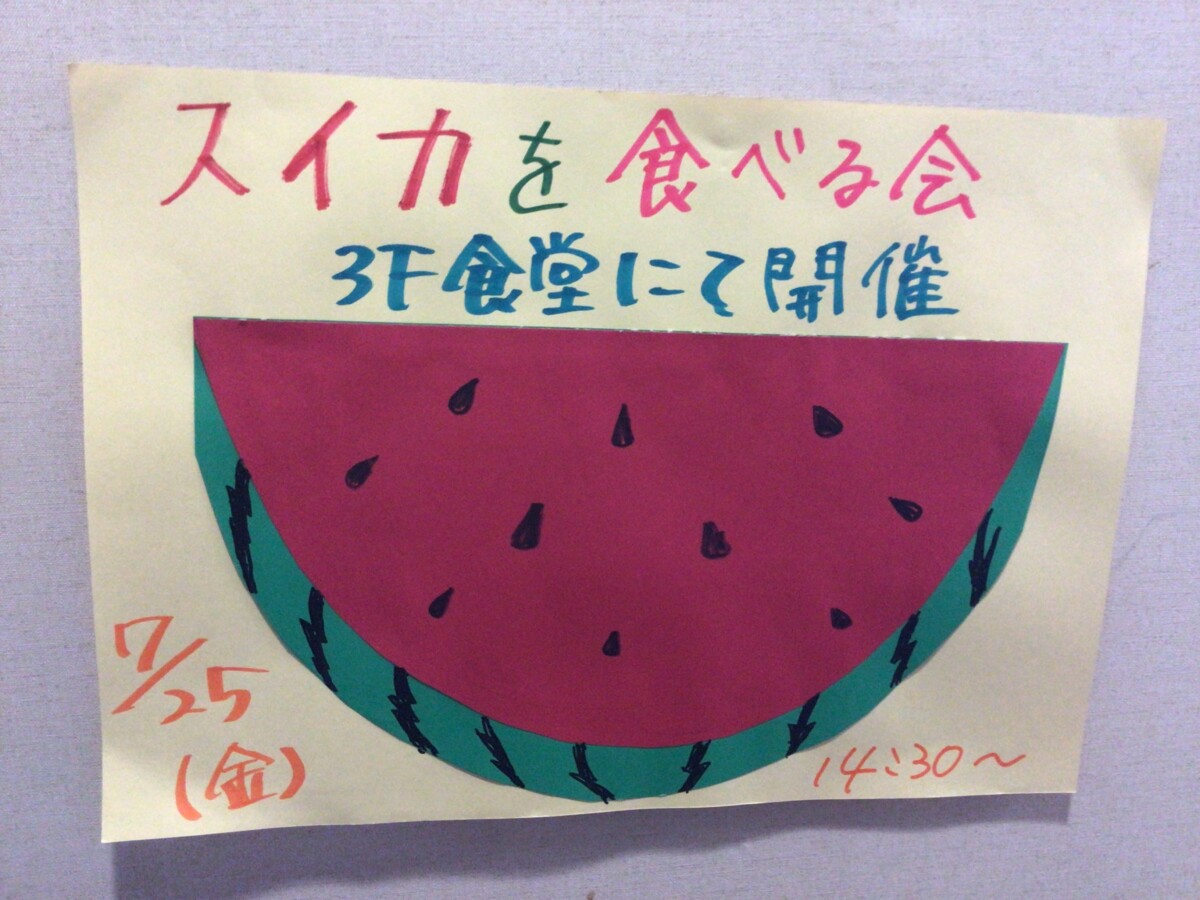 スイカを食べる会
3F食堂にて開催
7/25
(金)
14:30～